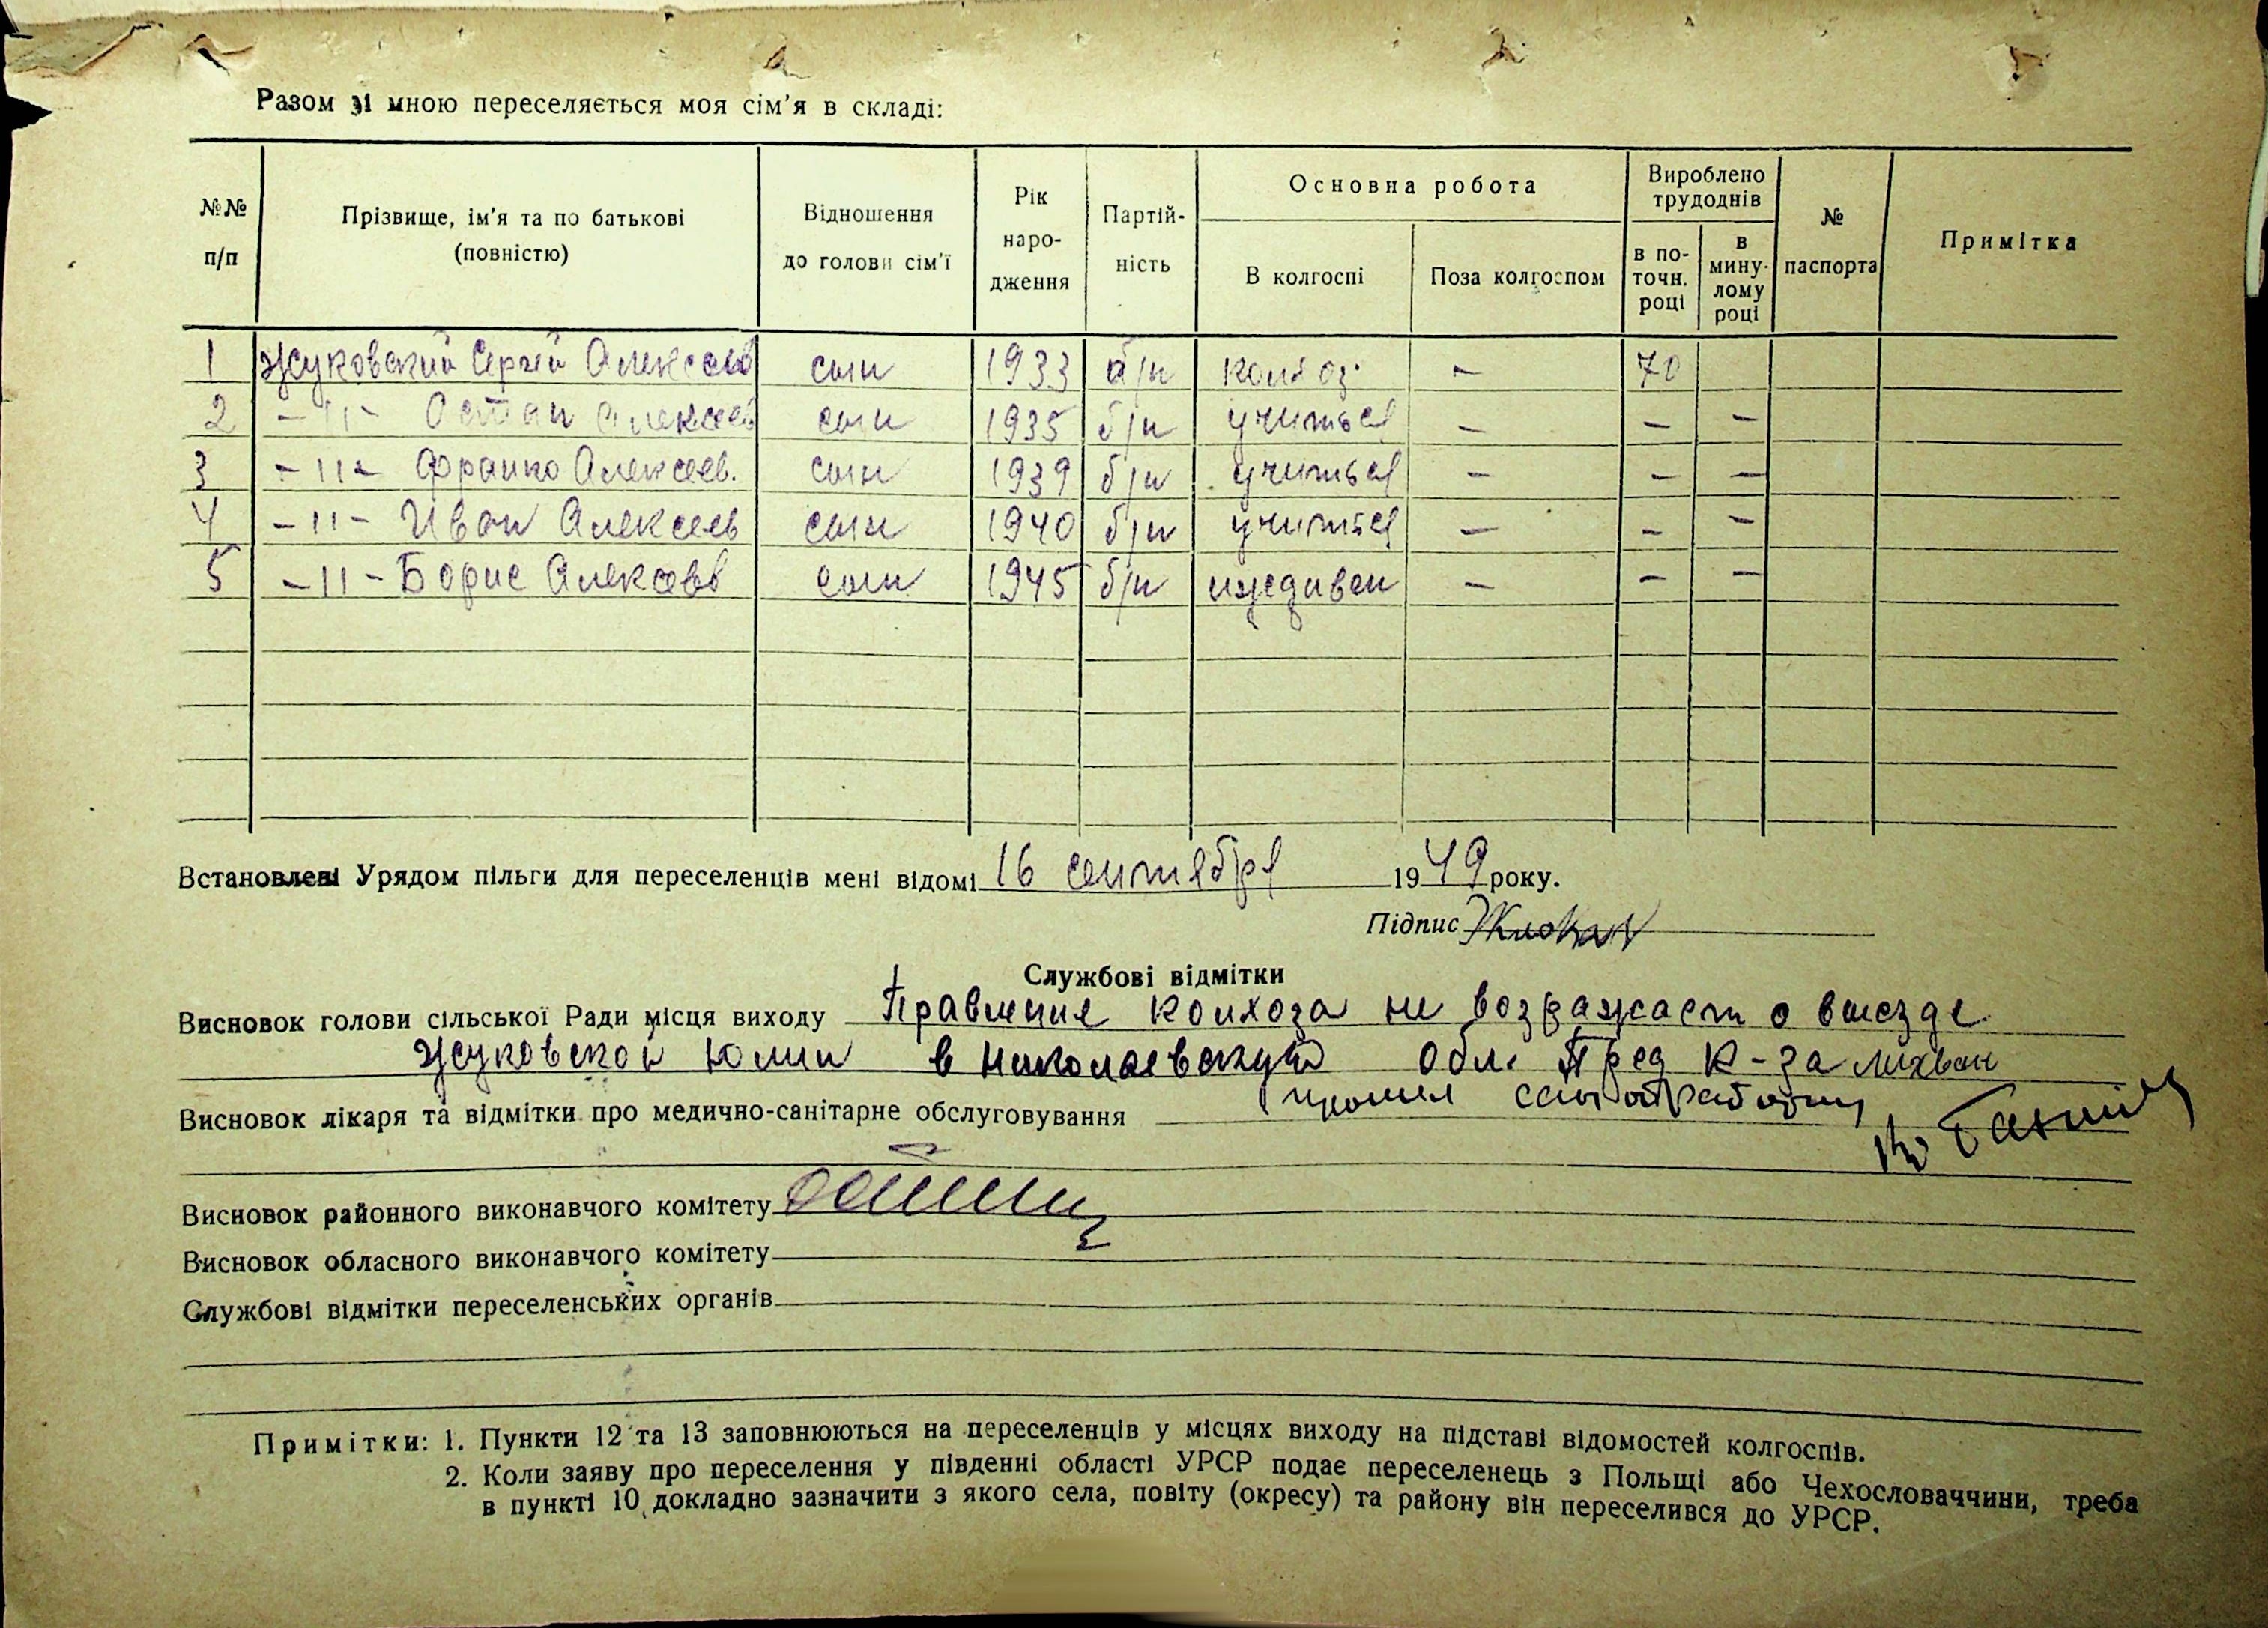 Разом зі мною переселяється моя сім'я в складі:
№№ п/п | Прізвище, ім'я та по батькові (повністю) | Відношення до голови сім'ї | Рік народження | Партійність | Основна робота | Вироблено трудоднів | № паспорта | Примітка
В колгоспі | Поза колгоспом | в поточн. році | в минулому році
1 Жуковский Сергей Алексеев сын 1933 б/п колхоз. - 70
2 -"- Остап Алексеев сын 1935 б/п учиться - - -
3 -"- Франко Алексеев. сын 1939 б/п учиться - - -
4 -"- Иван Алексеев сын 1940 б/п учиться - - -
5 -"- Борис Алексеев сын 1945 б/п иждивен - - -
Встановлені Урядом пільги для переселенців мені відомі 16 сентября 1949 року.
Підпис
Службові відмітки
Висновок голови сільської Ради місця виходу Правление колхоза не возражает о выезде
Жуковской Юлии в Николаевскую обл. Пред к-за
Висновок лікаря та відмітки про медично-санітарне обслуговування прошел санобработку
Висновок районного виконавчого комітету
Висновок обласного виконавчого комітету
Службові відмітки переселенських органів
Примітки: 1. Пункти 12 та 13 заповнюються на переселенців у місцях виходу на підставі відомостей колгоспів.
2. Коли заяву про переселення у південні області УРСР подає переселенець з Польщі або Чехословаччини, треба
в пункті 10 докладно зазначити з якого села, повіту (окресу) та району він переселився до УРСР.